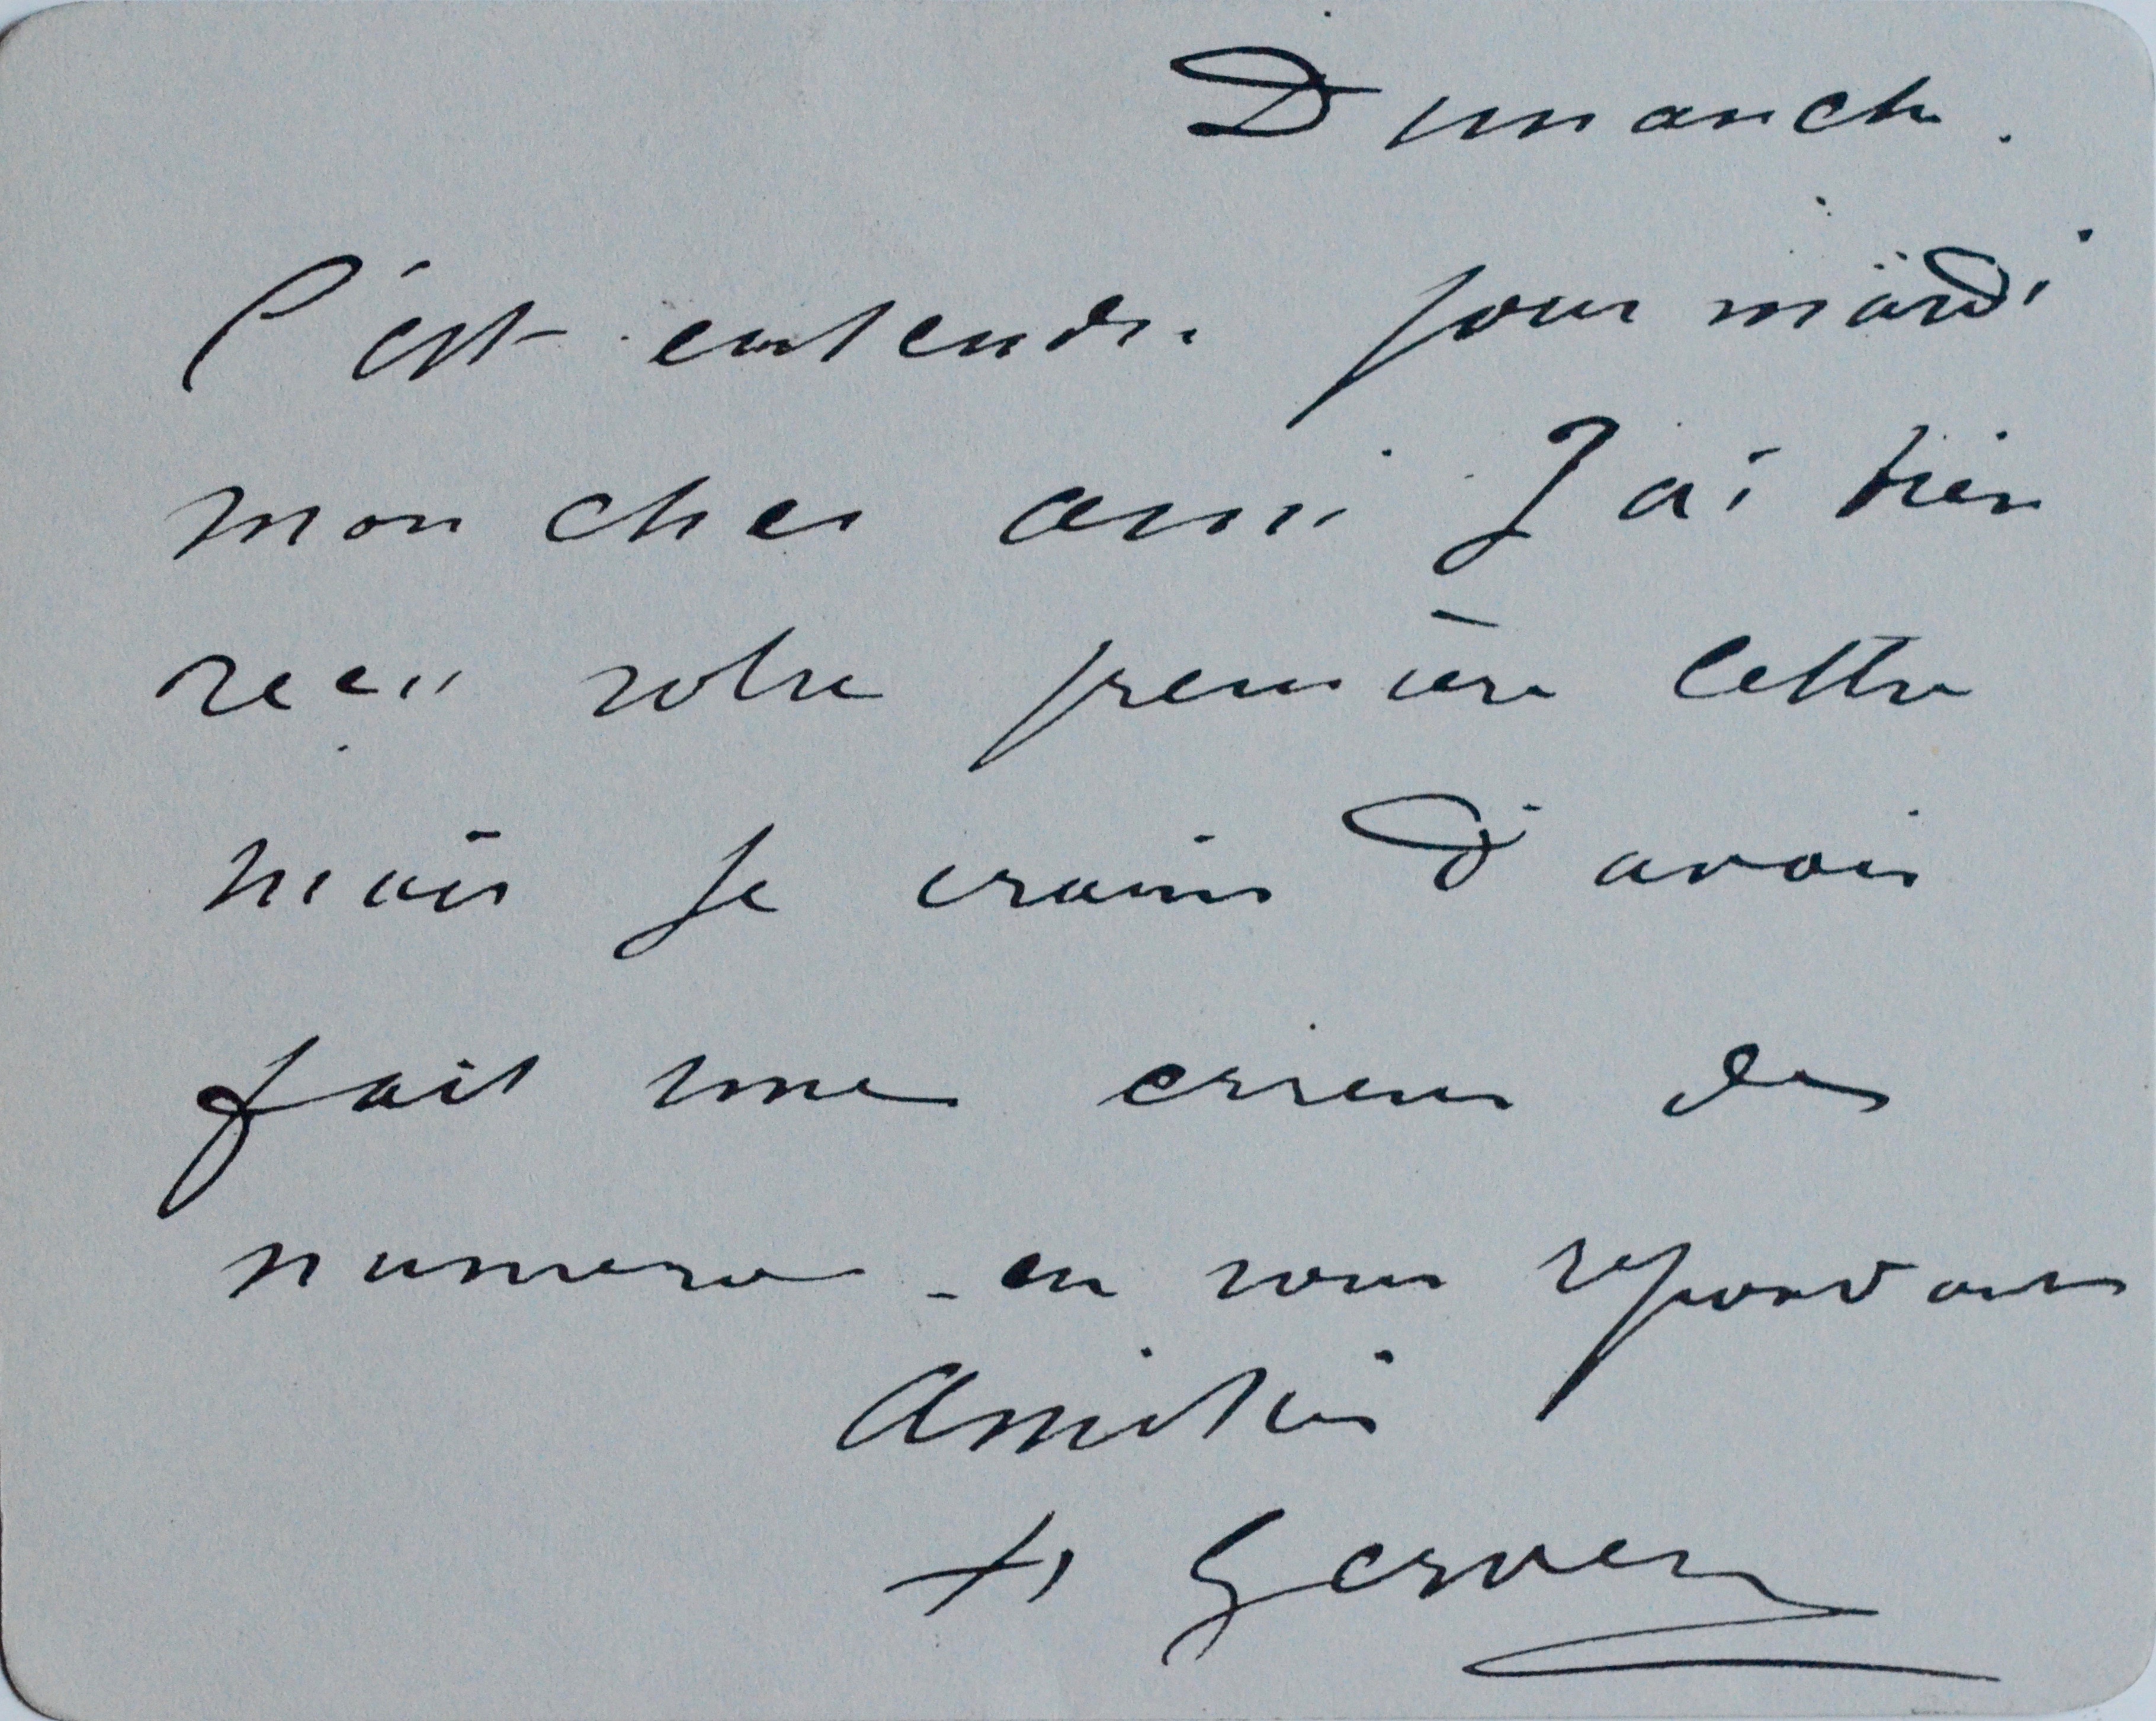 Dimanche.
C'est entendu pour mardi
mon cher ami J'ai bien
reçu votre première lettre
mais je crains d'avoir
fait une erreur de
numero - en vous repondant
Amitiés
H Gervex